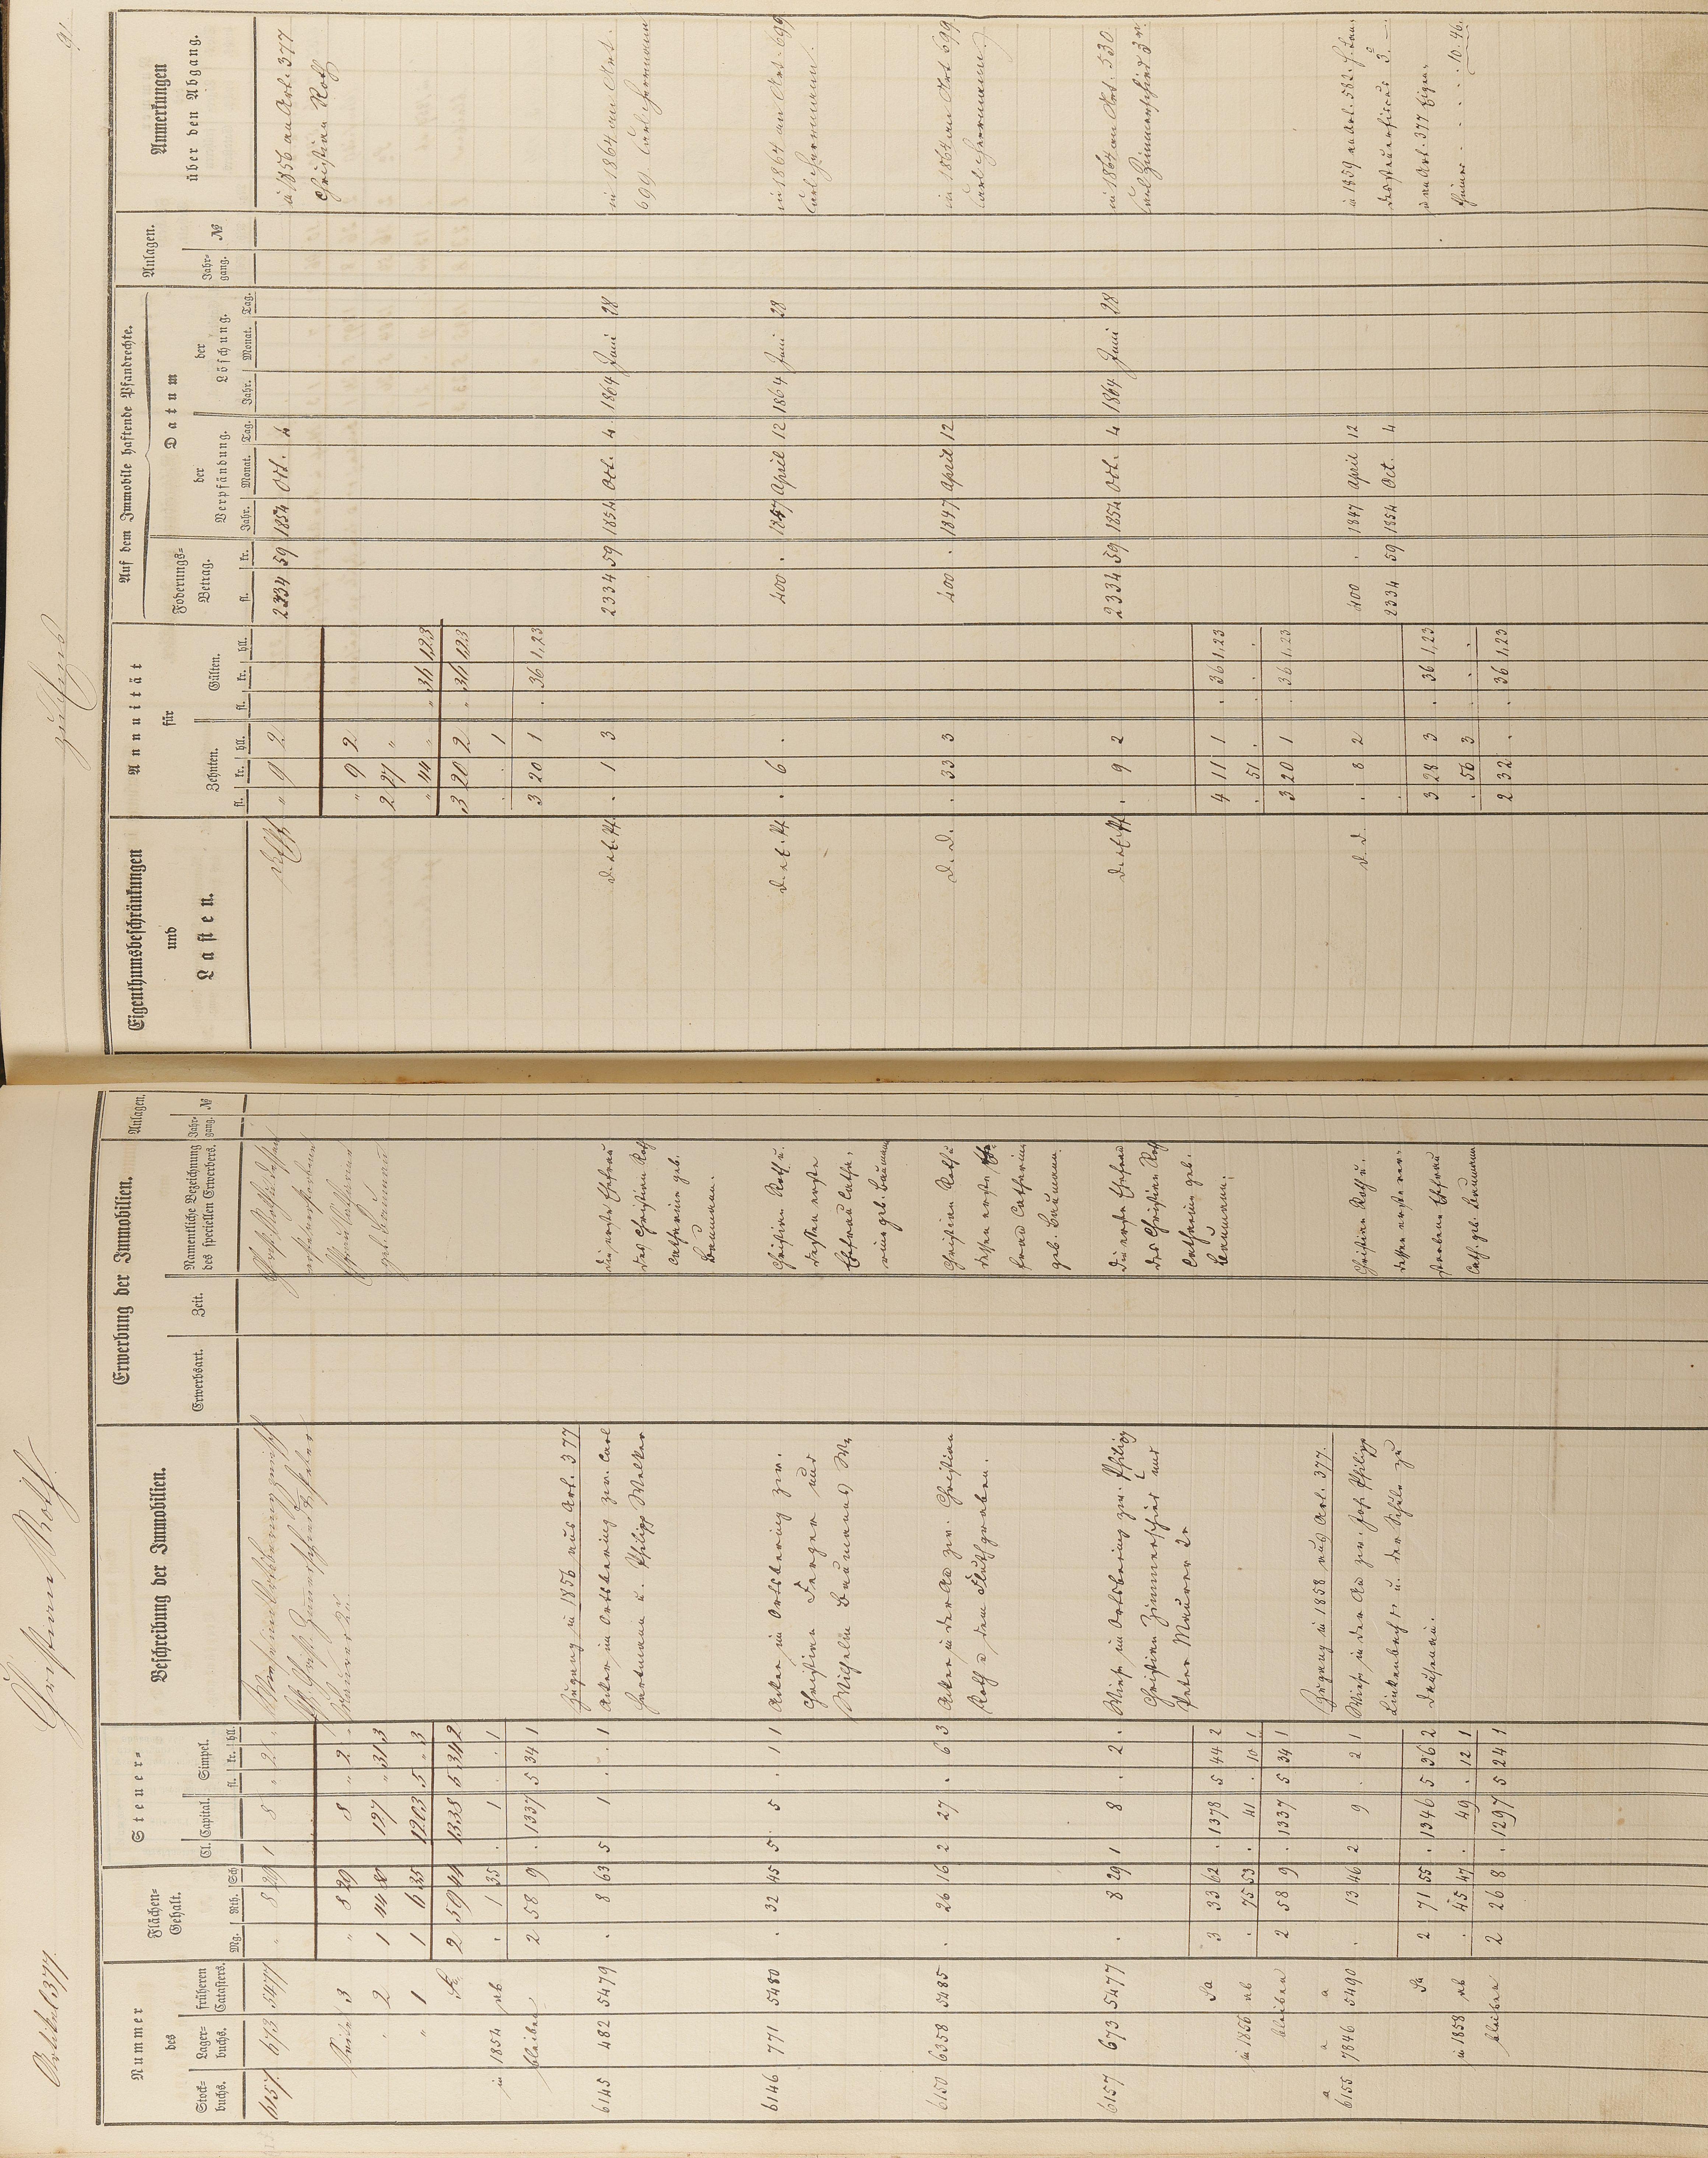 Artikel 377.
Christian Roth
9.
Nummer des
Stock-buchs.
Lager-buchs.
früheren Catasters.
Flächen-Gehalt.
Mg. Rth. Sch.
Steuer-
Cl. Capital. Simpel.
fl. kr. hll.
Beschreibung der Immobilien.
Erwerbung der Immobilien.
Erwerbsart.
Zeit.
Namentliche Bezeichnung des speciellen Erwerbers.
Anlagen.
Jahr-gang. №
Eigenthumsbeschränkungen und Lasten.
Annuität für
Zehnten. Gülten.
fl. kr. hll. fl. kr. hll.
Auf dem Immobile haftende Pfandrechte.
Foderungs-Betrag.
fl. kr.
Datum
der Verpfändung.
Jahr. Monat. Tag.
der Löschung.
Jahr. Monat. Tag.
Anlagen.
Jahr-gang. №
Anmerkungen über den Abgang.
6157 673 5477 " 8 29 1 8 " 2 "
" 9 2 2334 59 1854 Oct. 4
in 1856 an Art. 377
Christian Roth
Seite 3 " 8 29 8 " 2 "
" 9 2
" 2 1 44
2 27 "
" 1 1 6 35 1203 5 " 3
" 44 " " 34 123
2 59 44 1338 5 34 2
3 20 2 " 34 123
in 1854 ab . 1 35 . 1 . . 1
. . 1
bleiben 2 58 9 . 1337 5 34 1
3 20 1 . 36 1,23
Zugang in 1856 aus Art. 377
6145 482 5479 . 8 63 5 1 . . 1 Acker im Ortsbering zw. Carl
Hartmann u. Philipp Welker
die erste Ehefrau
des Christian Roth
Catharine geb.
Baumann.
. 1 3 2334 59 1854 Oct. 4 1864 Juni 28
in 1864 an Art.
699. Carl Herrmann
6146 771 5480 . 32 45 5 5 . 1 1 Acker im Ortsbering zw.
Christian Ferger und
Wilhelm Baumanns Wr
Christian Roth u.
dessen erste
Ehefrau Catha-
rine geb. Baumann
. 6 . 400 . 1847 April 12 1864 Juni 28
in 1864 an Art. 699
Carl Herrmann.
6150 6358 5485 . 26 16 2 27 . 6 3 Acker in der Au zw. Christian
Roth u. dem Fluthgraben.
Christian Roth u
dessen erste Ehe-
frau Catharine
geb. Baumann.
. 33 3 400 . 1847 April 12
in 1864 an Art. 699
Carl Herrmann.
6157 673 5477 . 8 29 1 8 . 2 . Wiese im Ortsbering zw. Philipp
Christian Zimmerschied und
Peter Maurer 2r
die erste Ehefrau
des Christian Roth
Catharine geb.
Baumann.
. 9 2 2334 59 1854 Oct. 4 1864 Juni 28
in 1864 an Art. 530
Carl Zimmerschied 3r.
Sa 3 33 62 . 1378 5 44 2
4 11 1 . 36 1,23
in 1856 ab . 75 53 41 . 10 1
. 51 . . . .
bleiben 2 58 9 . 1337 5 34 1
3 20 1 . 36 1.23
Zugang in 1858 aus Art. 377.
a 6155 a 7846 a 5490 . 13 46 2 9 . 2 1 Wiese in der Au zw. Joh. Philipp
Linkenbach u. der Schule zu
Dausenau.
Christian Roth u.
dessen erste ver-
storbene Ehefrau
Cath. geb. Baumann
. 8 2 400 . 1847 April 12
2334 59 1854 Oct. 4
Sa 2 71 55 . 1346 5 36 2
3 28 3 . 36 1,23
in 1858 ab . 45 47 . 49 . 12 1
. 56 3 . . .
bleiben 2 26 8 . 1297 5 24 1
2 32 . . 36 1,23